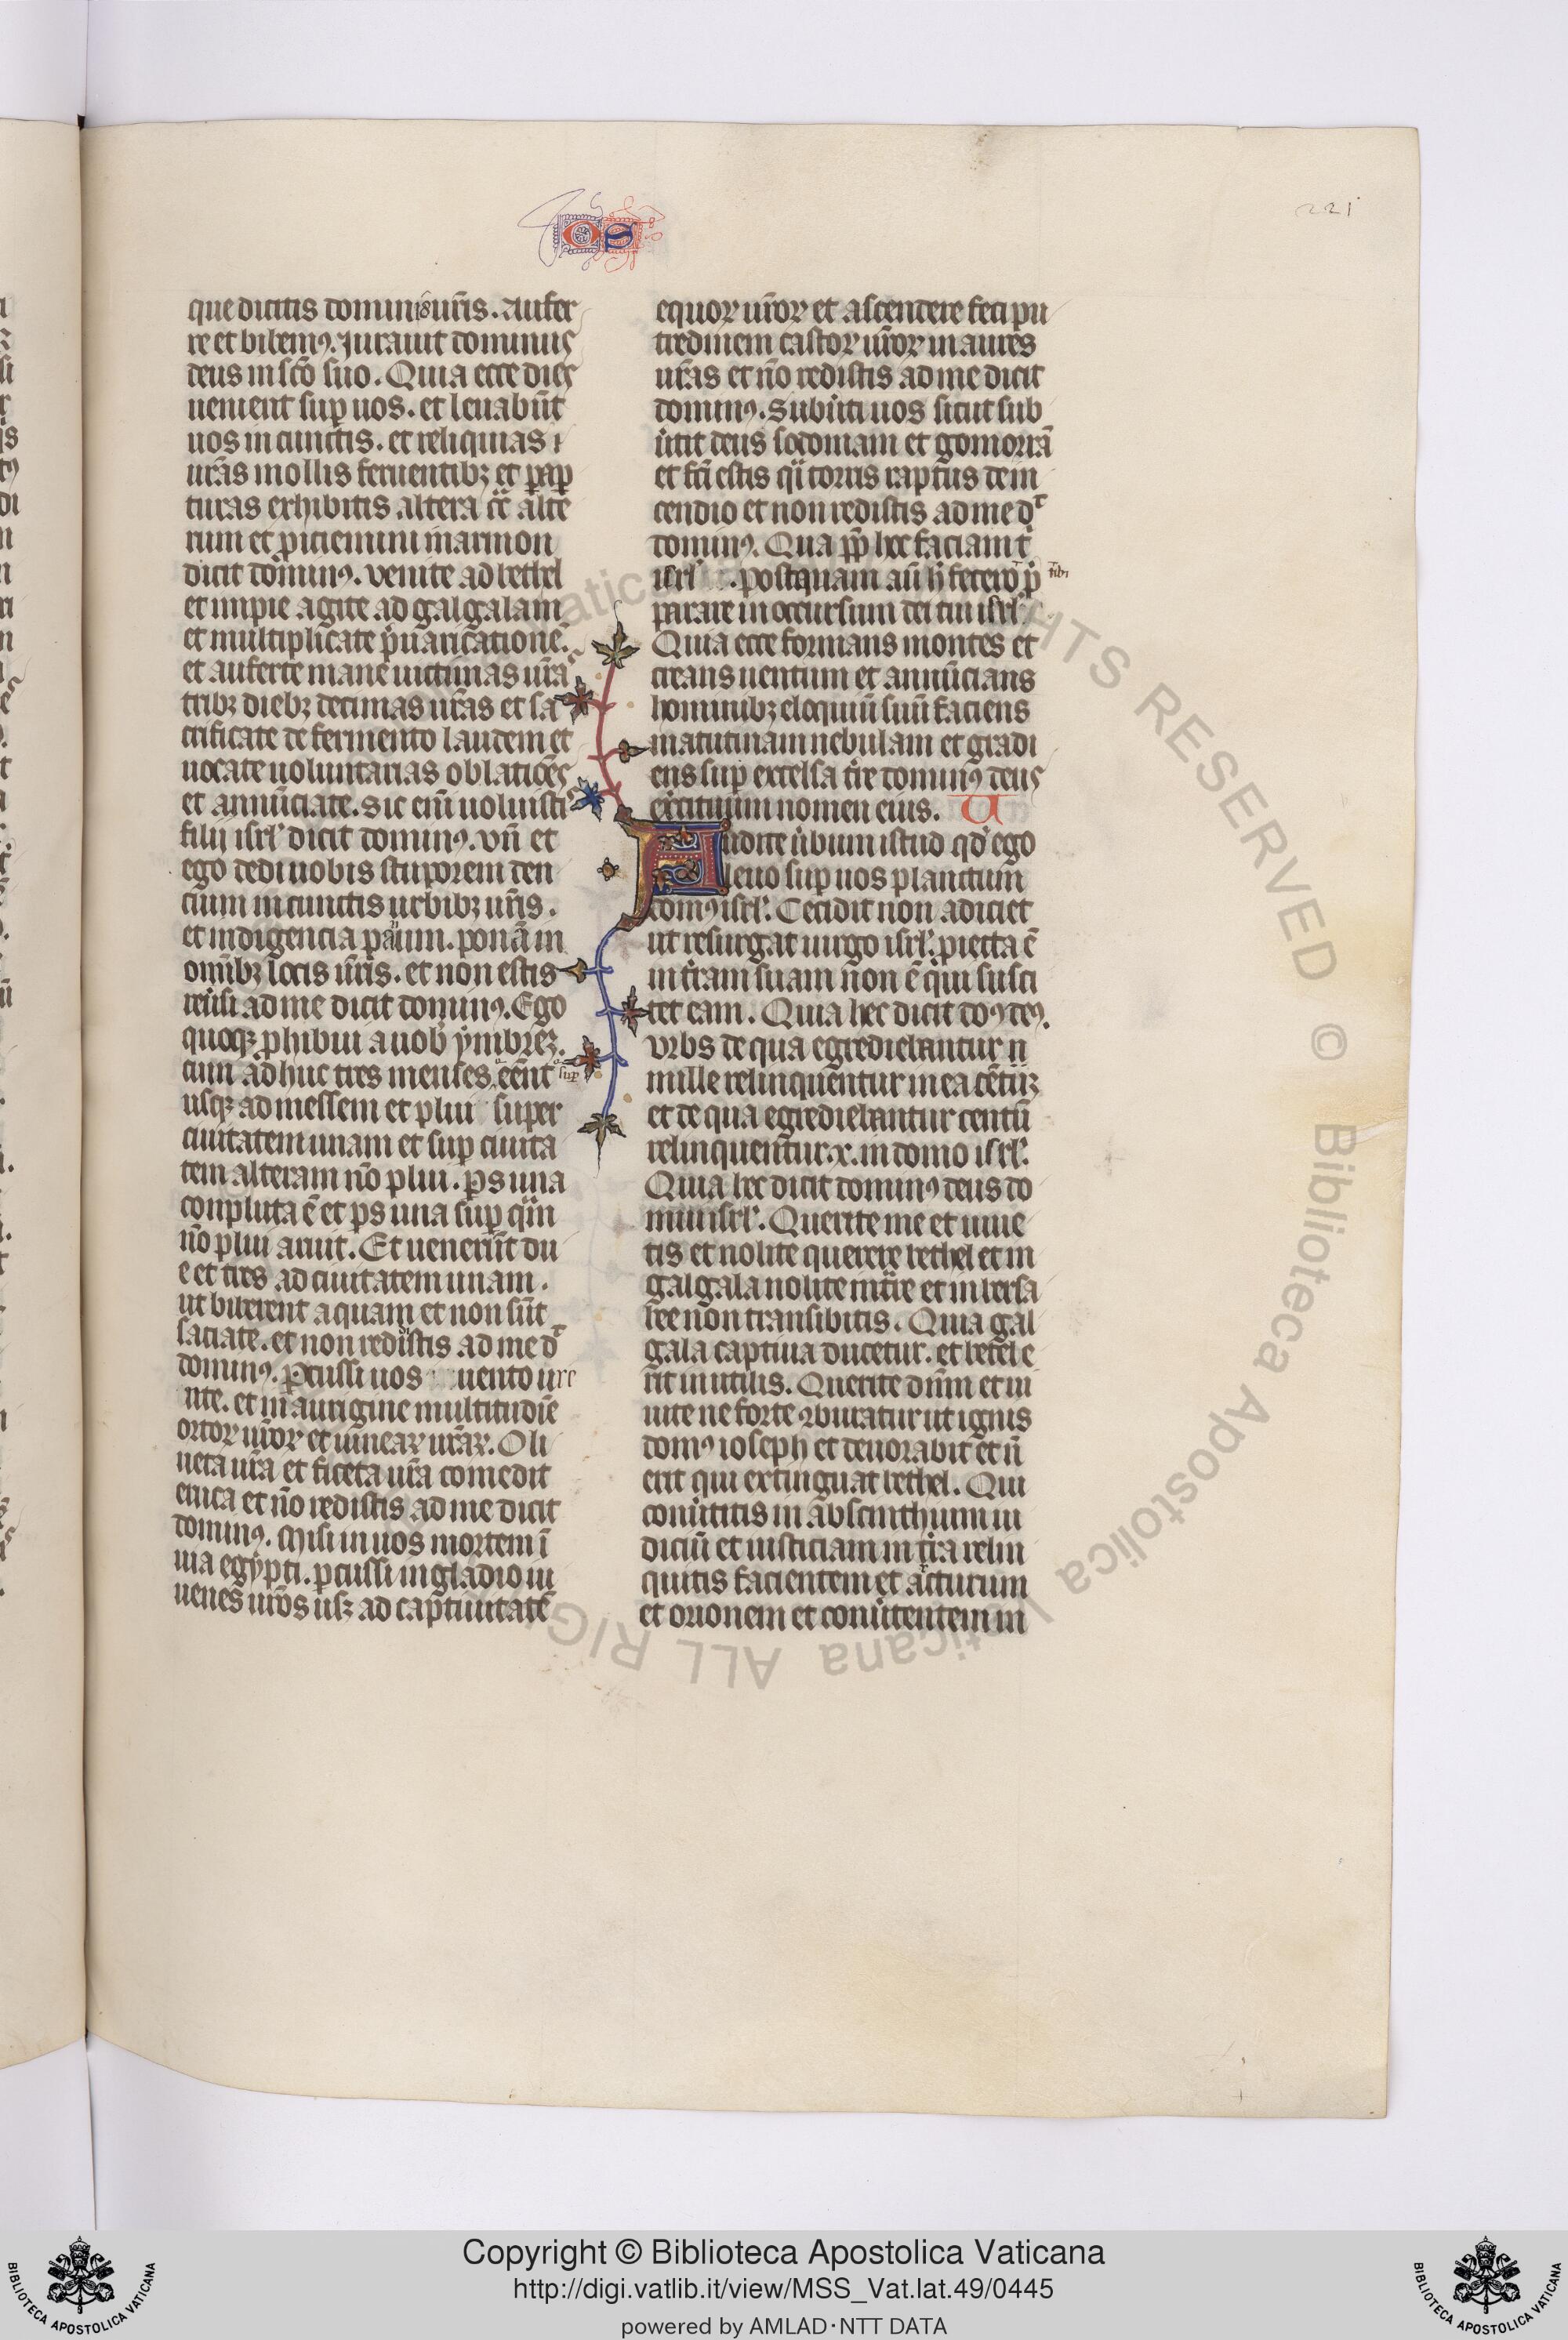 OS
221
que dicitis dominis ur̄is. Aufer
te et bibemꝰ. Iurauit dominus
deus in sc̄o suo. Quia ecce dies
uenient suꝑ uos. et leuabūt
uos in cunctis. et reliquias
ur̄as in ollis feruentibꝫ et ꝑ aꝑ
turas exhibitis altera cͣ alte
rum et ꝓiciemini in armon
dicit dominꝰ. venite ad bethel
et impie agite ad galgalam
et multiplicate p̄uaricationē.
et auferte mane uictimas ur̄as
tribꝫ diebꝫ decimas ur̄as et sa
crificate de fermento laudem et
uocate uoluntarias oblatiōes
et annūciate. sic em̄ uoluistis
filij isrl̓ dicit dominꝰ. vn̄ et
ego dedi uobis stuporem den
cium in cunctis urbibꝫ ur̄is.
et indigencia panum. ponā in
omībꝫ locis ur̄is. et non estis
reu̓si ad me dicit dominꝰ. Ego
quoqꝫ ꝓhibui a uob̓ ymbreꝫ.
cum adhuc tres menses eēnt suꝑ
usqꝫ ad messem et plui super
ciuitatem unam et suꝑ ciuita
tem alteram nō plui. ꝑs una
conpluta ē et ꝑs una suꝑ quā
nō plui aruit. Et uenerūt du
e et tres ad ciuitatem unam.
ut biberent aquam et non sūt
saciate. et non redistis ad me dͭ
dominꝰ. ꝑcussi uos uento ure
nte. et in aurigine multitudīe
ortoꝝ ur̄oꝝ et uineaꝝ ur̄aꝝ. Oli
ueta ur̄a et ficeta ur̄a comedit
eruca et nō redistis ad me dicit
dominꝰ. Misi in uos mortem ī
uia egypti. ꝑcussi in gladio iu
uenes ur̄os usqꝫ ad captiuitatē
equoꝝ ur̄oꝝ et ascendere feci pu
tredinem castroꝝ ur̄oꝝ in aures
ur̄as et nō redistis ad me dicit
dominꝰ. Subu̓ti uos sicut sub
u̓tit deus sodomam et gomorrā
et fc̄i estis qͣi torris raptus de in
cendio et non redistis ad me dͭ
dominꝰ. Qua ꝓp̄ hec faciam t̄
isrl̓. postquam aū h̓ fecero p̄ tibi
parare in occursum dei tui isrl̓.
Quia ecce formans montes et
creans uentum et annūcians
hominibꝫ eloquiū suū faciens
matutinam nebulam et gradi
ens suꝑ excelsa tr̄e dominꝰ deus
exercituum nomen eius. V
Audite u̓bum istud qd̓ ego
leuo suꝑ uos planctum
domꝰ isrl̓. Cecidit non adiciet
ut resurgat uirgo isrl̓. ꝓiecta ē
in tr̄am suam non ē qui susci
tet eam. Quia hec dicit doꝰ deꝰ.
vrbs de qua egrediebantur
mille relinquentur in ea cētū
et de qua egrediebantur centū
relinquentur .x. in domo isrl̓.
Quia hec dicit dominꝰ deus do
mui isrl̓. Querite me et uiue
tis et nolite querere bethel et in
galgala nolite intͣre et in bersa
bee non transibitis. Quia gal
gala captiua ducetur. et betel e
rit inutilis. Querite dn̄m et ui
uite ne forte ꝯburatur ut ignis
domꝰ ioseph et deuorabit et n̄
erit qui extinguat bethel. Qui
conu̓titis in abscinthium iu
diciū et iusticiam in tr̄a relin
quitis facientem et arcturum
et orionem et conu̓tentem in
Copyright © Biblioteca Apostolica Vaticana
http://digi.vatlib.it/view/MSS_Vat.lat.49/0445
powered by AMLAD·NTT DATA
BIBLIOTECA APOSTOLICA VATICANA
BIBLIOTECA APOSTOLICA VATICANA